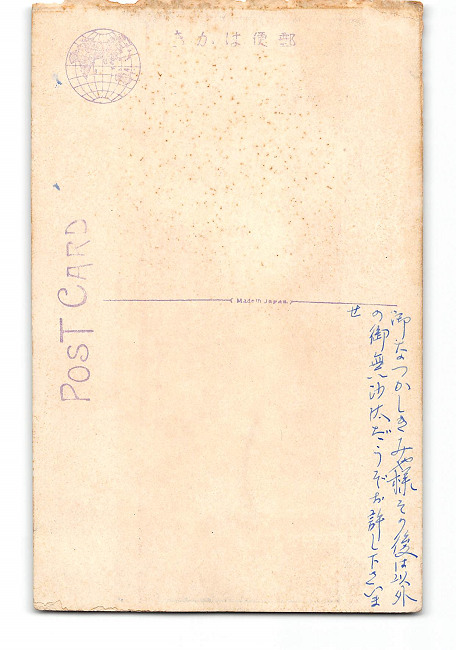 郵便はかき
POST CARD
Made in Japan
御なつかしきみや様その後は以外
の御無沙汰どうぞお許し下さいま
せ